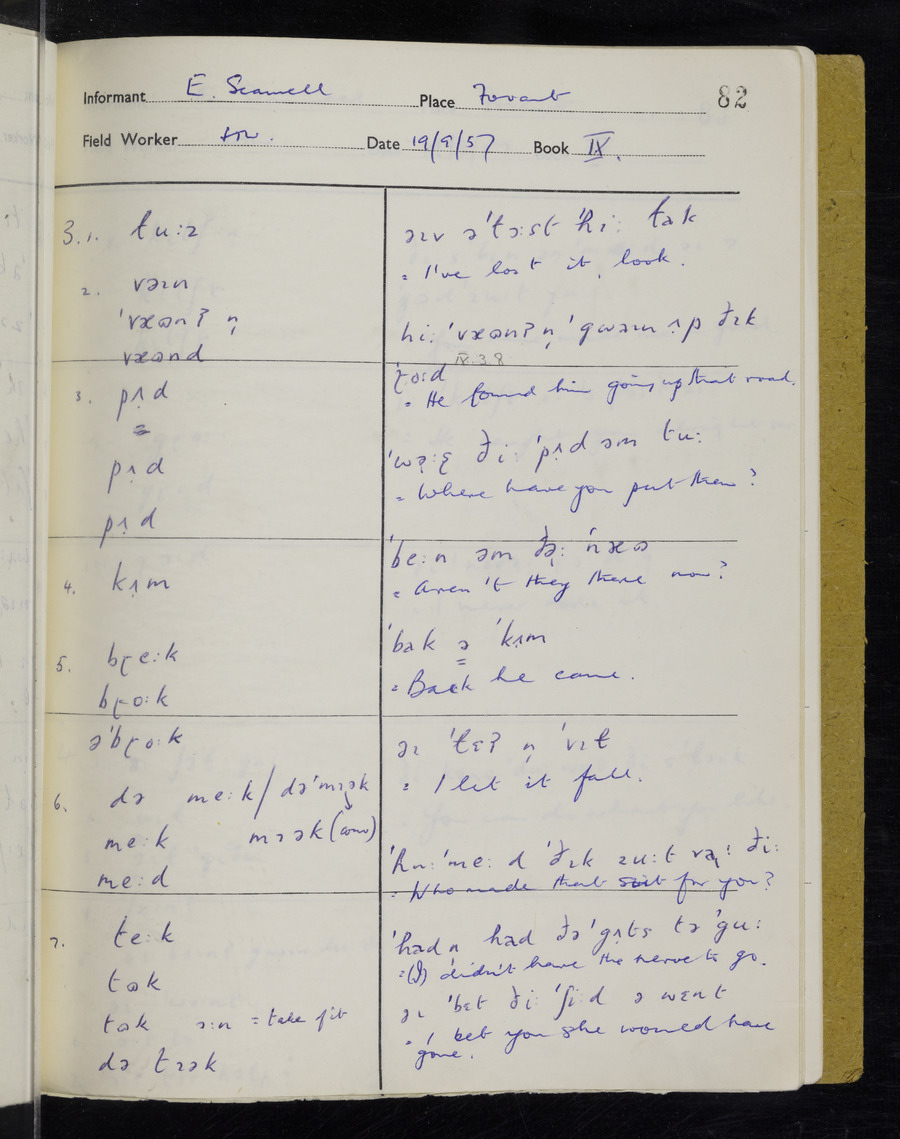 82
Informant E. Scamell Place Fovant
Field Worker Date 19/9/57 Book IX.
3.1. tu:z
2. vəɪn
'væʊnʔ n̩
væʊnd
3. pʌd
pʌd
pʌd
4. kʌm
5. bɽe:k
bɽo:k
ə'bɽo:k
6. də me:k / də'mɪək
me:k mɪək (conv)
me:d
7. te:k
tʊk
tʊk ɔ:n = take fit
də tɪək
əɪv ə'tɔ:st 'hi: tak
= I've lost it, look.
hi: 'væʊnʔ n̩ 'gwəɪn ʌp ðɪk
IX.3.8
'ɽo:d
= He found him going up that road.
'wə:ɽ ði: 'pʌd əm tu:
= Where have you put them?
'be:n əm ðə: 'næʊ
= Aren't they there now?
'bak ə 'kʌm
= Back he came.
əɪ 'tɛʔ n̩ 'vɪt
= I let it fall.
'hu: 'me:d 'ðɪk zu:t və: ði:
= Who made that suit for you?
'hadn had ðə 'gʌts tə 'gu:
= (I) didn't have the nerve to go.
əɪ 'bɛt ði: 'ʃi:d ə wɛnt
= I bet you she would have
gone.